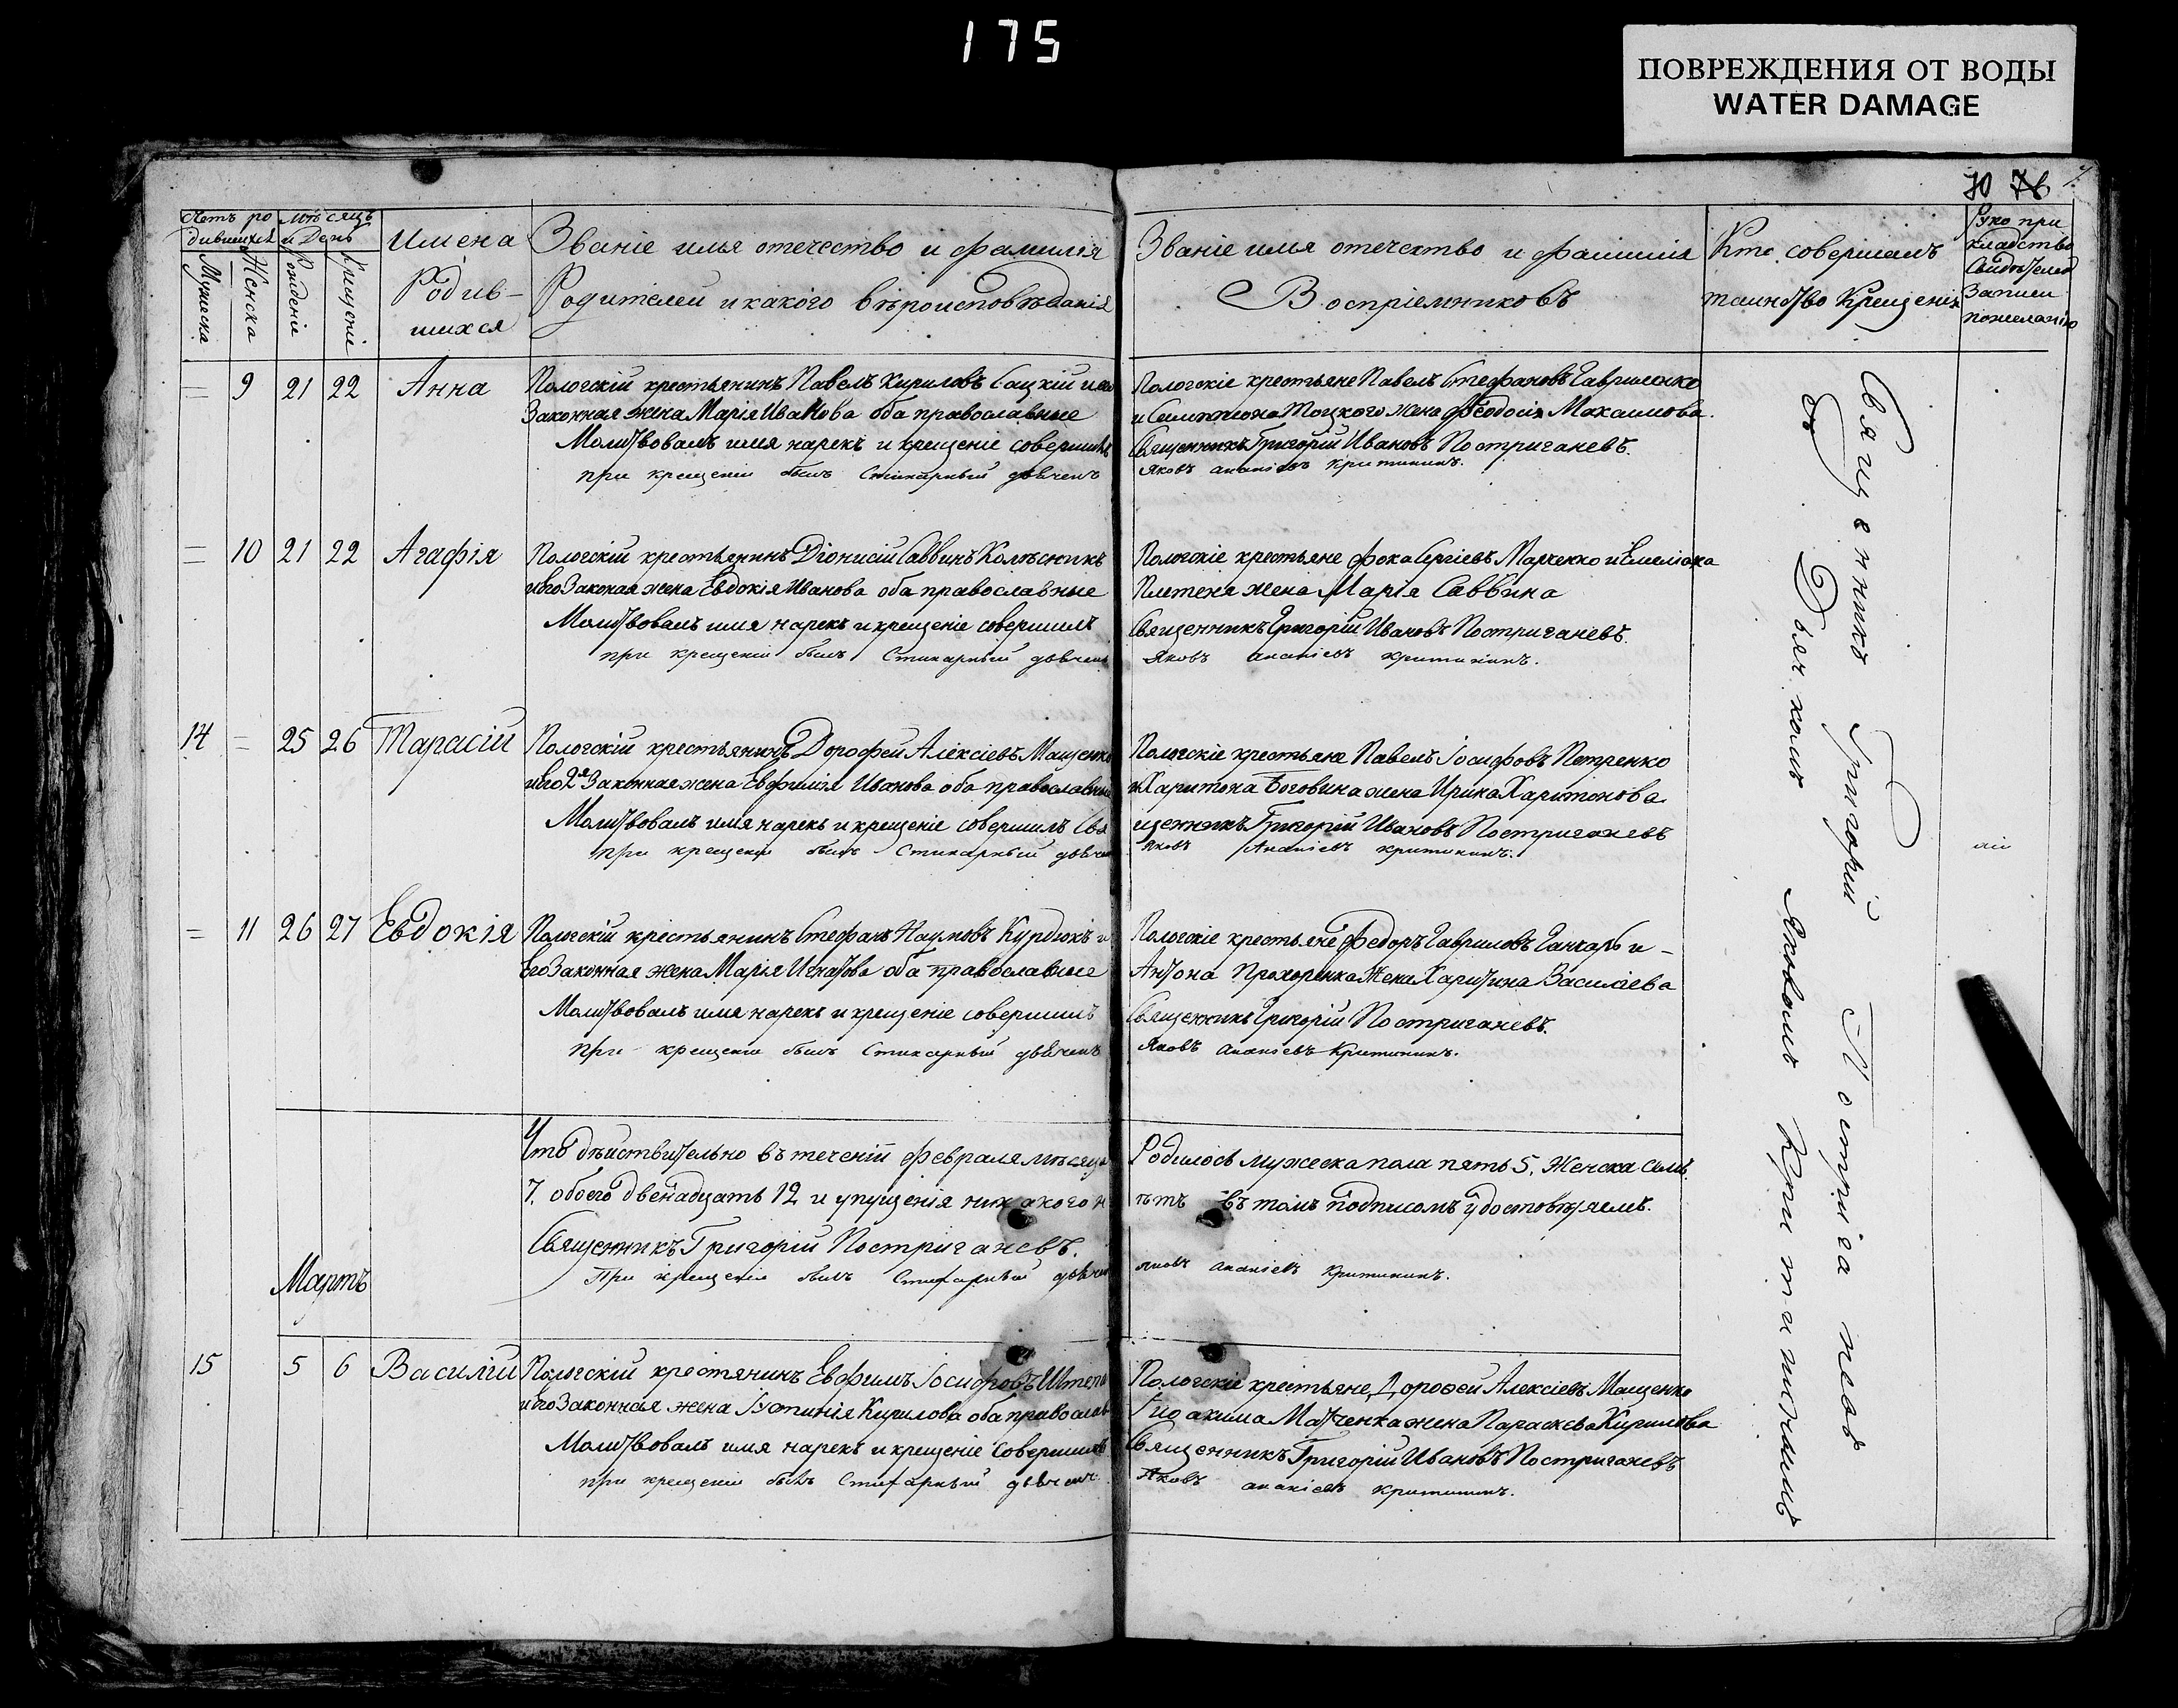 175
ПОВРЕЖДЕНИЯ ОТ ВОДЫ
WATER DAMAGE
70 76
Счетъ родившихся
Мѣсяцъ и День
Мужеска
Женска
Рожденіе
Крещеніе
Имена
Родив-
шихся
Званіе имя отечество и фамилія
Родителей и какого вѣроисповѣданія
Званіе имя отечество и фамилія
Воспріемниковъ
Кто совершалъ
таинство Крещенія
Руко при
кладство
Свидѣтелей
Записи
пожеланію
= 9 21 22 Анна
Пологскій крестьянинъ Павелъ Кириловъ
Законная жена Марія Иванова оба православные
Молитвовалъ имя нарекъ и крещеніе совершилъ
при крещеніи былъ Стихарный дьячекъ
Пологскіе крестьяне Павелъ Стефановъ Гавриленко
и Симптиона Тоцкого жена Феодосія Макаимова.
Священникъ Григорій Ивановъ Постриганевъ.
Яковъ Ананіевъ Критининъ.
= 10 21 22 Агафія
Пологскій крестьянинъ Діонисій Саввинъ Колѣсникъ
и Его Законая жена Евдокія Иванова оба православные
Молитвовалъ имя нарекъ и крещеніе совершилъ
при крещеніи былъ Стихарный дьячекъ
Пологскіе крестьяне Фока Сергіевъ Марченко и Емеліана
Плетеня жена Марія Саввина
Священникъ Григорій Ивановъ Постриганевъ.
Яковъ Ананіевъ Критининъ.
14 = 25 26 Тарасій
Пологскій крестьянинъ Дорофей Алексіевъ Мащенко
и Его 2я Законная жена Евфимія Иванова оба православные
Молитвовалъ имя нарекъ и крещеніе совершилъ Свя
при крещеніи былъ Стихарный дьячекъ
Пологскіе крестьяне Павелъ Іосифовъ Петренко
и Харитона Боговина жена Ирина Харитонова
щенникъ Григорій Ивановъ Постриганевъ
Яковъ Ананіевъ Критининъ.
= 11 26 27 Евдокія
Пологскій крестьянинъ Стефанъ Наумовъ Курдюкъ и
Его Законная жена Марія Игнатова оба православные
Молитвовалъ имя нарекъ и крещеніе совершилъ
При крещеніи былъ Стихарный дьячекъ
Пологскіе крестьяне Федоръ Гавриловъ и –
Антона Прохоренка Жена Харитина Василіева
Священникъ Григорій Постриганевъ.
Яковъ Ананіевъ Критининъ.
Что дѣйствительно въ теченій февраля мѣсяца
7. обоего двенадцать 12 и упущенія никакого н
Священникъ Григорій Постриганевъ.
При крещеніи былъ Стихарный дьячекъ
Родилось мужеска пола пять 5. Женска семь
ѣтъ въ томъ подписомъ удостовѣряемъ.
Яковъ Ананіевъ Критининъ.
Мартъ
15 5 6 Василій
Пологскій крестянинъ Евфимъ Іосифовъ
и Его Законная жена Іустинія Кирилова оба православ
Молитвовалъ имя нарекъ и крещеніе совершилъ
при крещеніи былъ Стихарный дьячекъ
Пологскіе крестьяне Дорофей Алексіевъ Мащенко
Марченка жена Параскева Кирилова
Священникъ Григорій Ивановъ Постриганевъ
Яковъ Ананіевъ Критининъ.
Священникъ Григорій Постриганевъ
съ Дьячкомъ Яковомъ Критининымъ